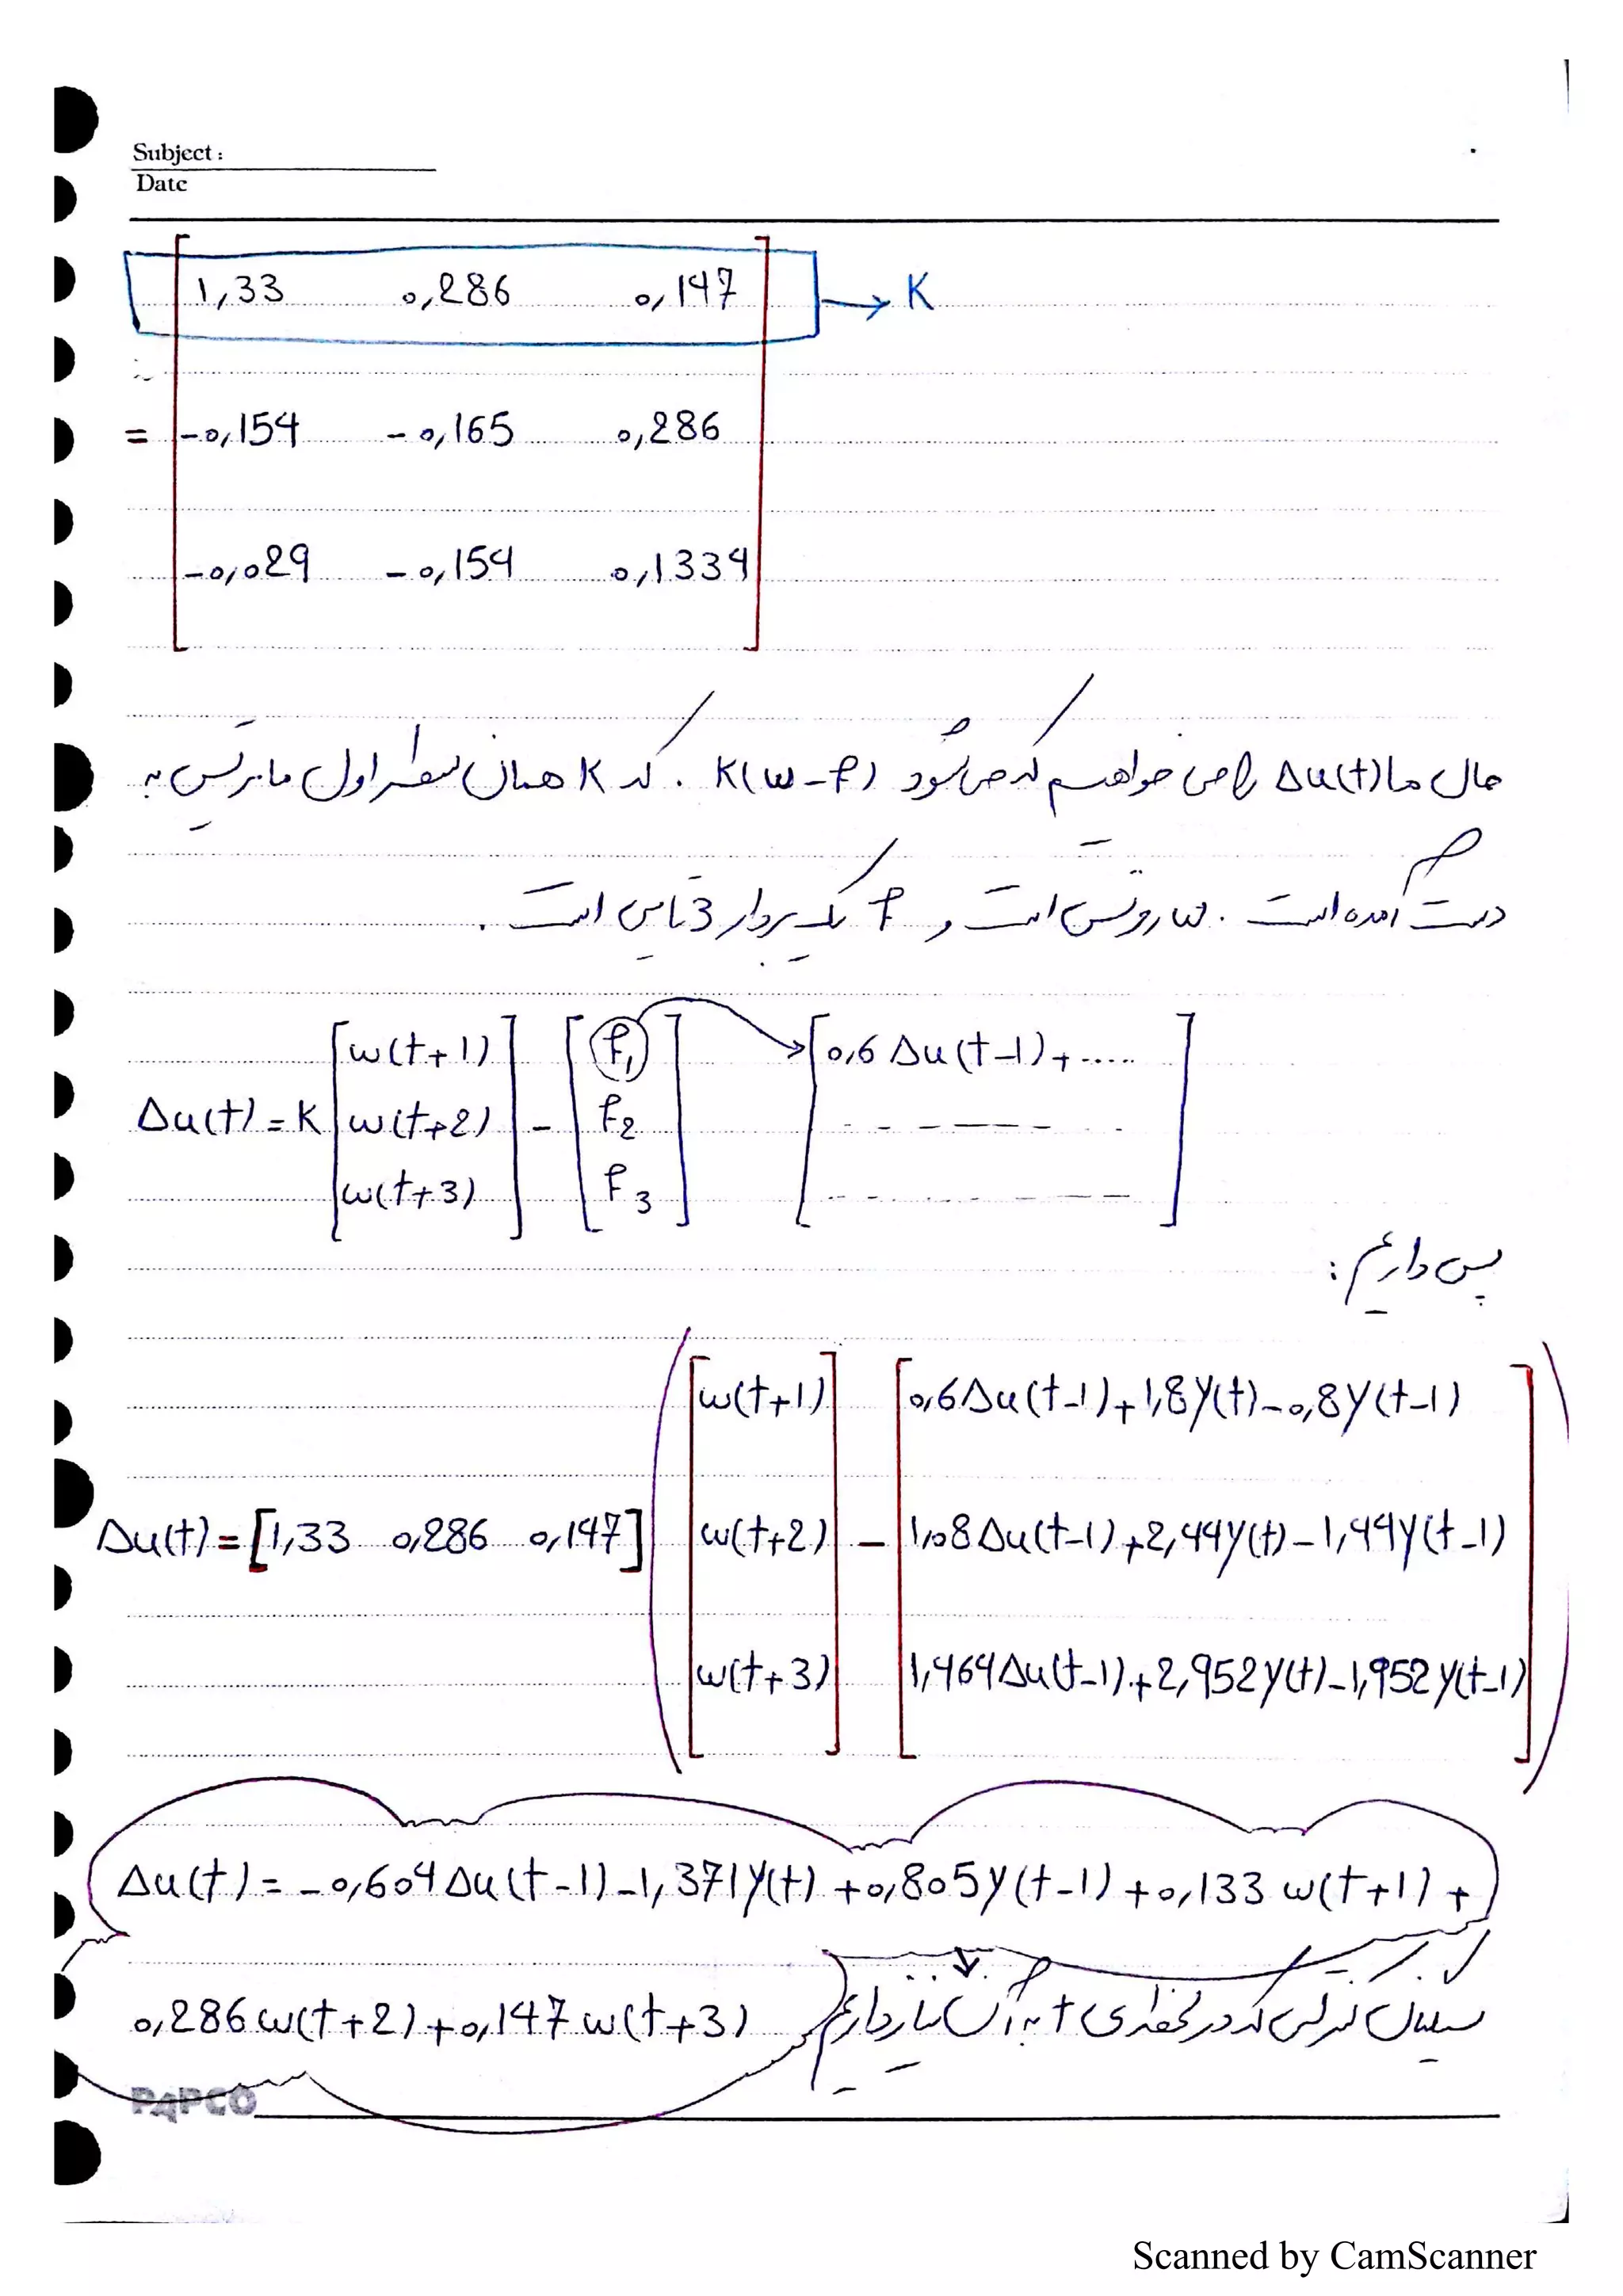 Subject :
Date
1,33 0,286 0,147 → K
= -0,154 -0,165 0,286
-0,029 -0,154 0,1334
حال ما Δu(t) را می خواهیم که می شود K(w-f) . که K همان سطر اول ماتریس به
دست آمده است . w رفرنس است و f یک بردار 3 تایی است .
w(t+1) f1 → 0,6 Δu(t-1)+.....
Δu(t) = K w(t+2) - f2 - - - - - -
w(t+3) f3 - - - - - - -
پس داریم :
w(t+1) 0,6Δu(t-1)+1,8y(t)-0,8y(t-1)
Δu(t) = [1,33 0,286 0,147] w(t+2) - 1,08Δu(t-1)+2,44y(t)-1,44y(t-1)
w(t+3) 1,464Δu(t-1)+2,952y(t)-1,952y(t-1)
Δu(t) = -0,604Δu(t-1)-1,371y(t)+0,805y(t-1)+0,133w(t+1)+
0,286w(t+2)+0,147w(t+3)
سیگنال کنترلی که در لحظه ی t به آن نیاز داریم
PAPCO
Scanned by CamScanner